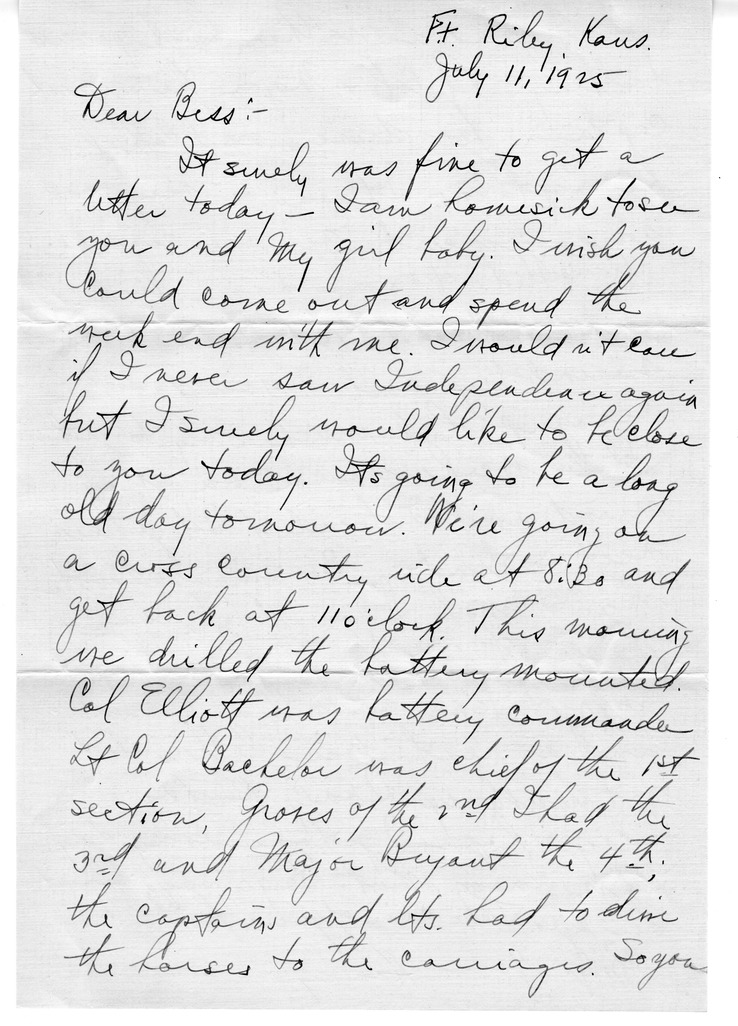 Ft. Riley, Kans.
July 11, 1925
Dear Bess:-
It surely was fine to get a
letter today - I am homesick to see
you and My girl baby. I wish you
could come out and spend the
week end with me. I would n't care
if I never saw Independence again
but I surely would like to be close
to you today. It's going to be a long
old day tomorrow. We're going on
a cross country ride at 8:30 and
get back at 11 o'clock. This morning
we drilled the battery mounted.
Col Elliott was battery commander
Lt Col Bachelor was chief of the 1st
section, Groves of the 2nd I had the
3rd and Major Bryant the 4th;
the captains and lts. had to drive
the horses to the carriages. So you